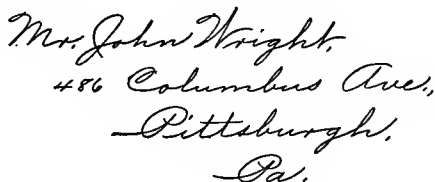 Mr. John Wright,
486 Columbus Ave.,
Pittsburgh,
Pa.